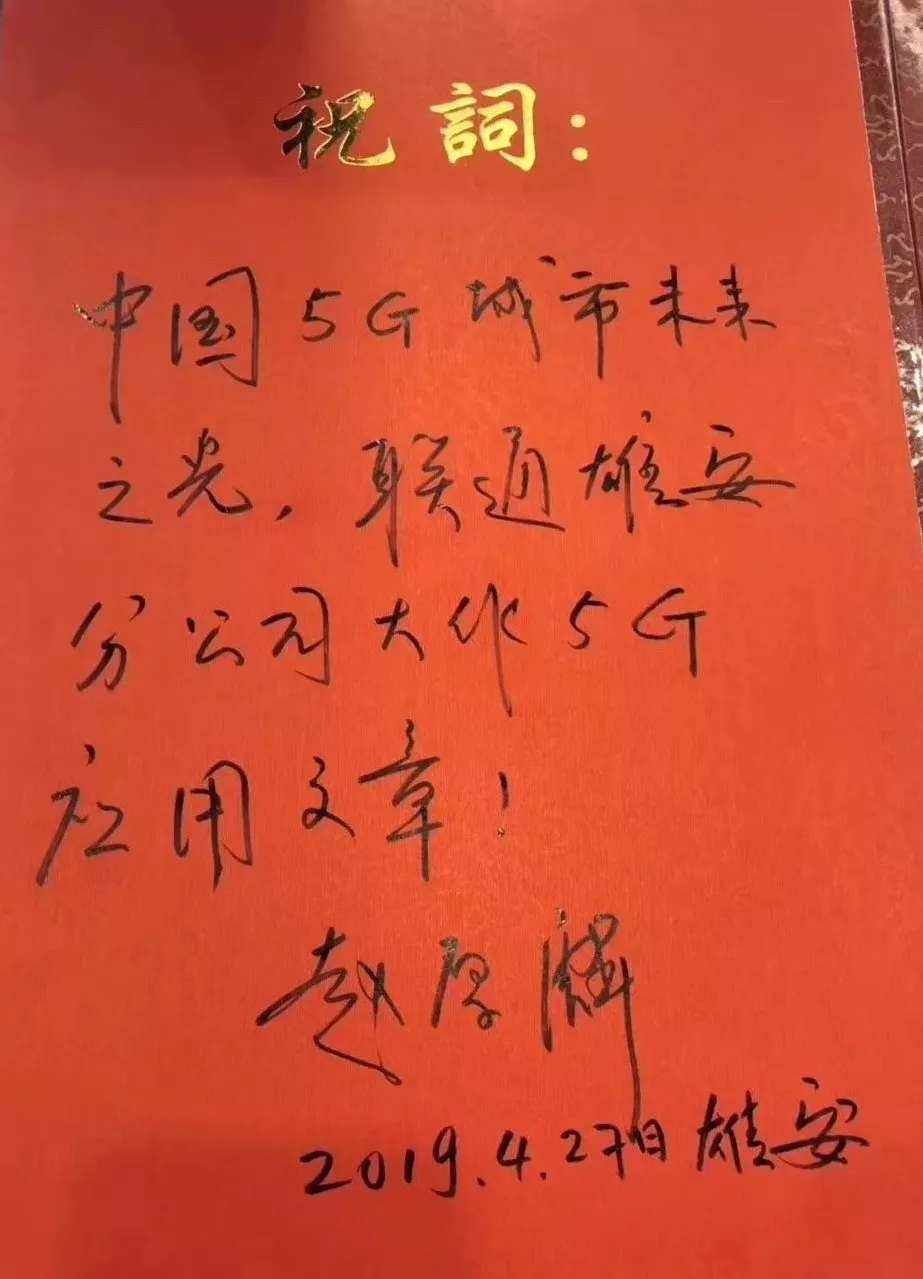 祝詞：
中国5G城市未来
之光，联通雄安
分公司大作5G
应用文章！
赵厚麟
2019.4.27日雄安